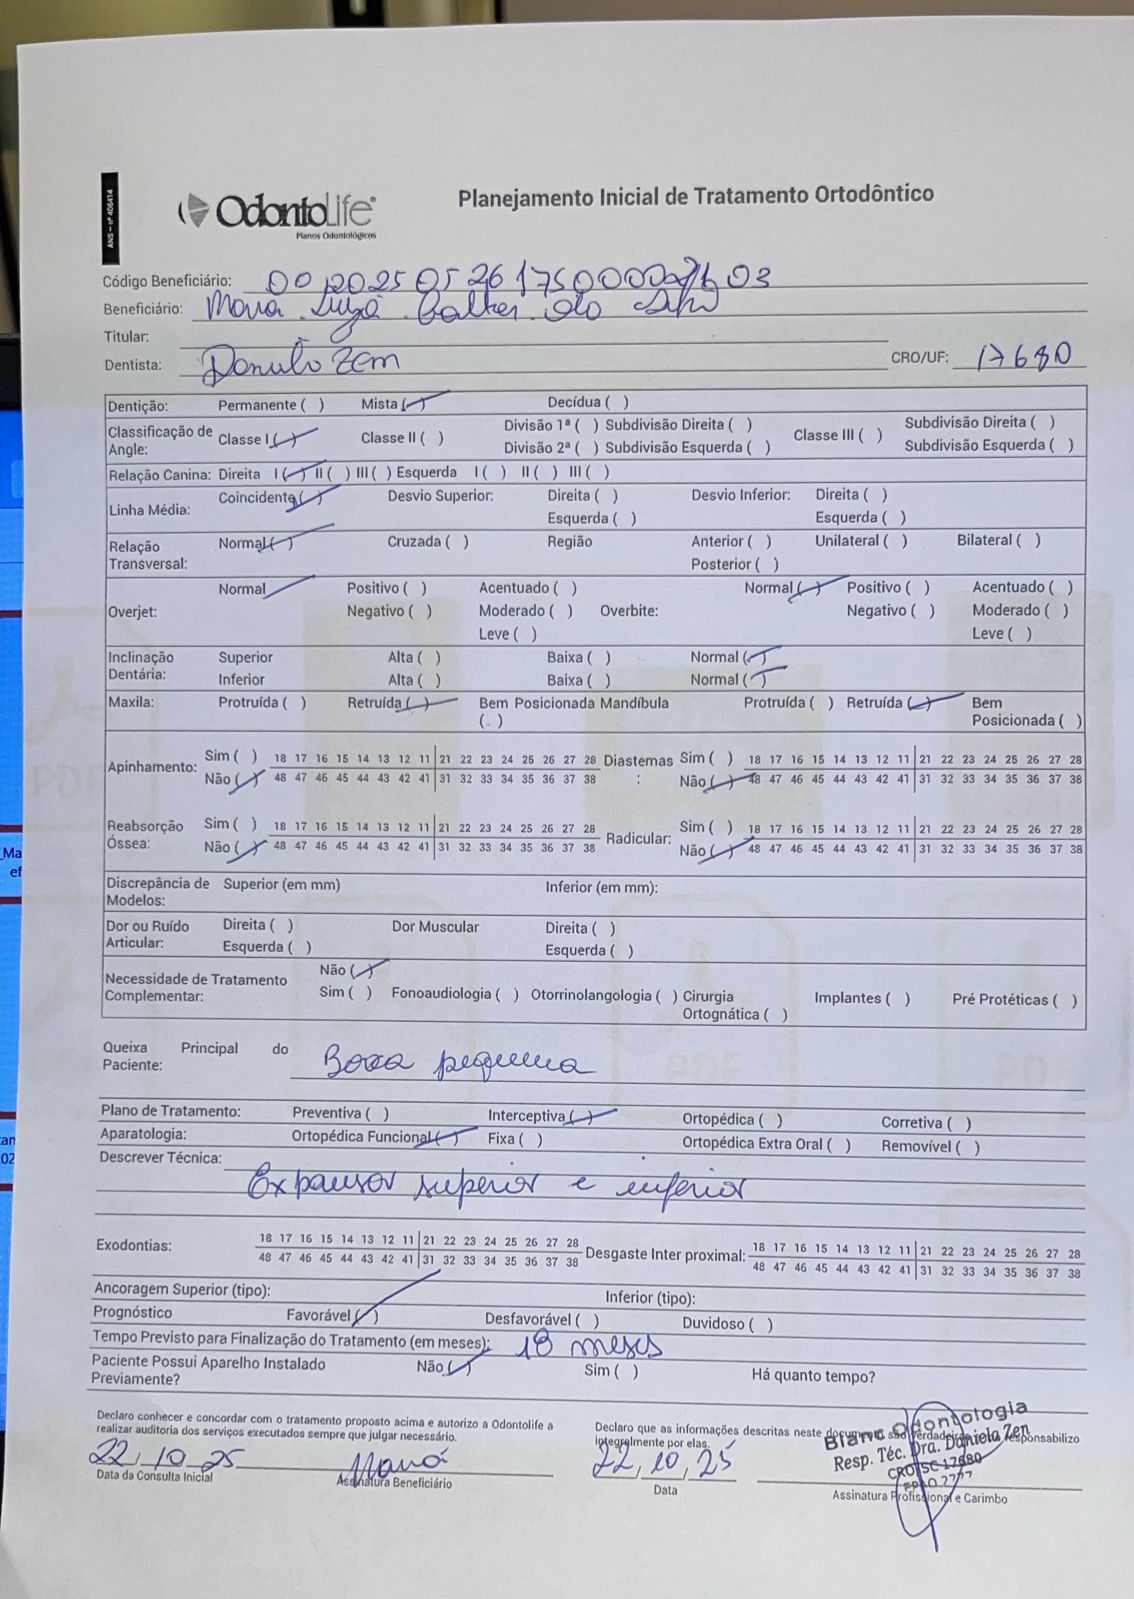 ANS – nº 406414
OdontoLife®
Planos Odontológicos
Planejamento Inicial de Tratamento Ortodôntico
Código Beneficiário: 03
Beneficiário:
Titular:
Dentista: Zem CRO/UF: 17680
Dentição: Permanente ( ) Mista (✓) Decídua ( )
Classificação de Angle: Classe I (✓) Classe II ( ) Divisão 1ª ( ) Subdivisão Direita ( ) Classe III ( ) Subdivisão Direita ( )
Divisão 2ª ( ) Subdivisão Esquerda ( ) Subdivisão Esquerda ( )
Relação Canina: Direita I (✓) II ( ) III ( ) Esquerda I ( ) II ( ) III ( )
Linha Média: Coincidente (✓) Desvio Superior: Direita ( ) Desvio Inferior: Direita ( )
Esquerda ( ) Esquerda ( )
Relação Transversal: Normal (✓) Cruzada ( ) Região Anterior ( ) Unilateral ( ) Bilateral ( )
Posterior ( )
Overjet: Normal ✓ Positivo ( ) Acentuado ( ) Overbite: Normal (✓) Positivo ( ) Acentuado ( )
Negativo ( ) Moderado ( ) Negativo ( ) Moderado ( )
Leve ( ) Leve ( )
Inclinação Dentária: Superior Alta ( ) Baixa ( ) Normal (✓)
Inferior Alta ( ) Baixa ( ) Normal (✓)
Maxila: Protruída ( ) Retruída (✓) Bem Posicionada ( ) Mandíbula Protruída ( ) Retruída (✓) Bem Posicionada ( )
Apinhamento: Sim ( ) 18 17 16 15 14 13 12 11 21 22 23 24 25 26 27 28 Diastemas: Sim ( ) 18 17 16 15 14 13 12 11 21 22 23 24 25 26 27 28
Não (✓) 48 47 46 45 44 43 42 41 31 32 33 34 35 36 37 38 Não (✓) 48 47 46 45 44 43 42 41 31 32 33 34 35 36 37 38
Reabsorção Óssea: Sim ( ) 18 17 16 15 14 13 12 11 21 22 23 24 25 26 27 28 Radicular: Sim ( ) 18 17 16 15 14 13 12 11 21 22 23 24 25 26 27 28
Não (✓) 48 47 46 45 44 43 42 41 31 32 33 34 35 36 37 38 Não (✓) 48 47 46 45 44 43 42 41 31 32 33 34 35 36 37 38
Discrepância de Modelos: Superior (em mm) Inferior (em mm):
Dor ou Ruído Articular: Direita ( ) Dor Muscular Direita ( )
Esquerda ( ) Esquerda ( )
Necessidade de Tratamento Complementar: Não (✓)
Sim ( ) Fonoaudiologia ( ) Otorrinolangologia ( ) Cirurgia Ortognática ( ) Implantes ( ) Pré Protéticas ( )
Queixa Principal do Paciente: Boca pequena
Plano de Tratamento: Preventiva ( ) Interceptiva (✓) Ortopédica ( ) Corretiva ( )
Aparatologia: Ortopédica Funcional (✓) Fixa ( ) Ortopédica Extra Oral ( ) Removível ( )
Descrever Técnica:
Expansor superior e inferior
Exodontias: 18 17 16 15 14 13 12 11 21 22 23 24 25 26 27 28 Desgaste Inter proximal: 18 17 16 15 14 13 12 11 21 22 23 24 25 26 27 28
48 47 46 45 44 43 42 41 31 32 33 34 35 36 37 38 48 47 46 45 44 43 42 41 31 32 33 34 35 36 37 38
Ancoragem Superior (tipo): Inferior (tipo):
Prognóstico Favorável (✓) Desfavorável ( ) Duvidoso ( )
Tempo Previsto para Finalização do Tratamento (em meses): 18 meses
Paciente Possui Aparelho Instalado Previamente? Não (✓) Sim ( ) Há quanto tempo?
Declaro conhecer e concordar com o tratamento proposto acima e autorizo a Odontolife a
realizar auditoria dos serviços executados sempre que julgar necessário.
Declaro que as informações descritas neste documento são verdadeiras responsabilizo
integralmente por elas.
22, 10, 25
Data da Consulta Inicial
Assinatura Beneficiário
22, 10, 25
Data
Blanc Odontologia
Resp. Téc. Dra. Daniela Zen
CRO/SC 17680
EPAO 2777
Assinatura Profissional e Carimbo